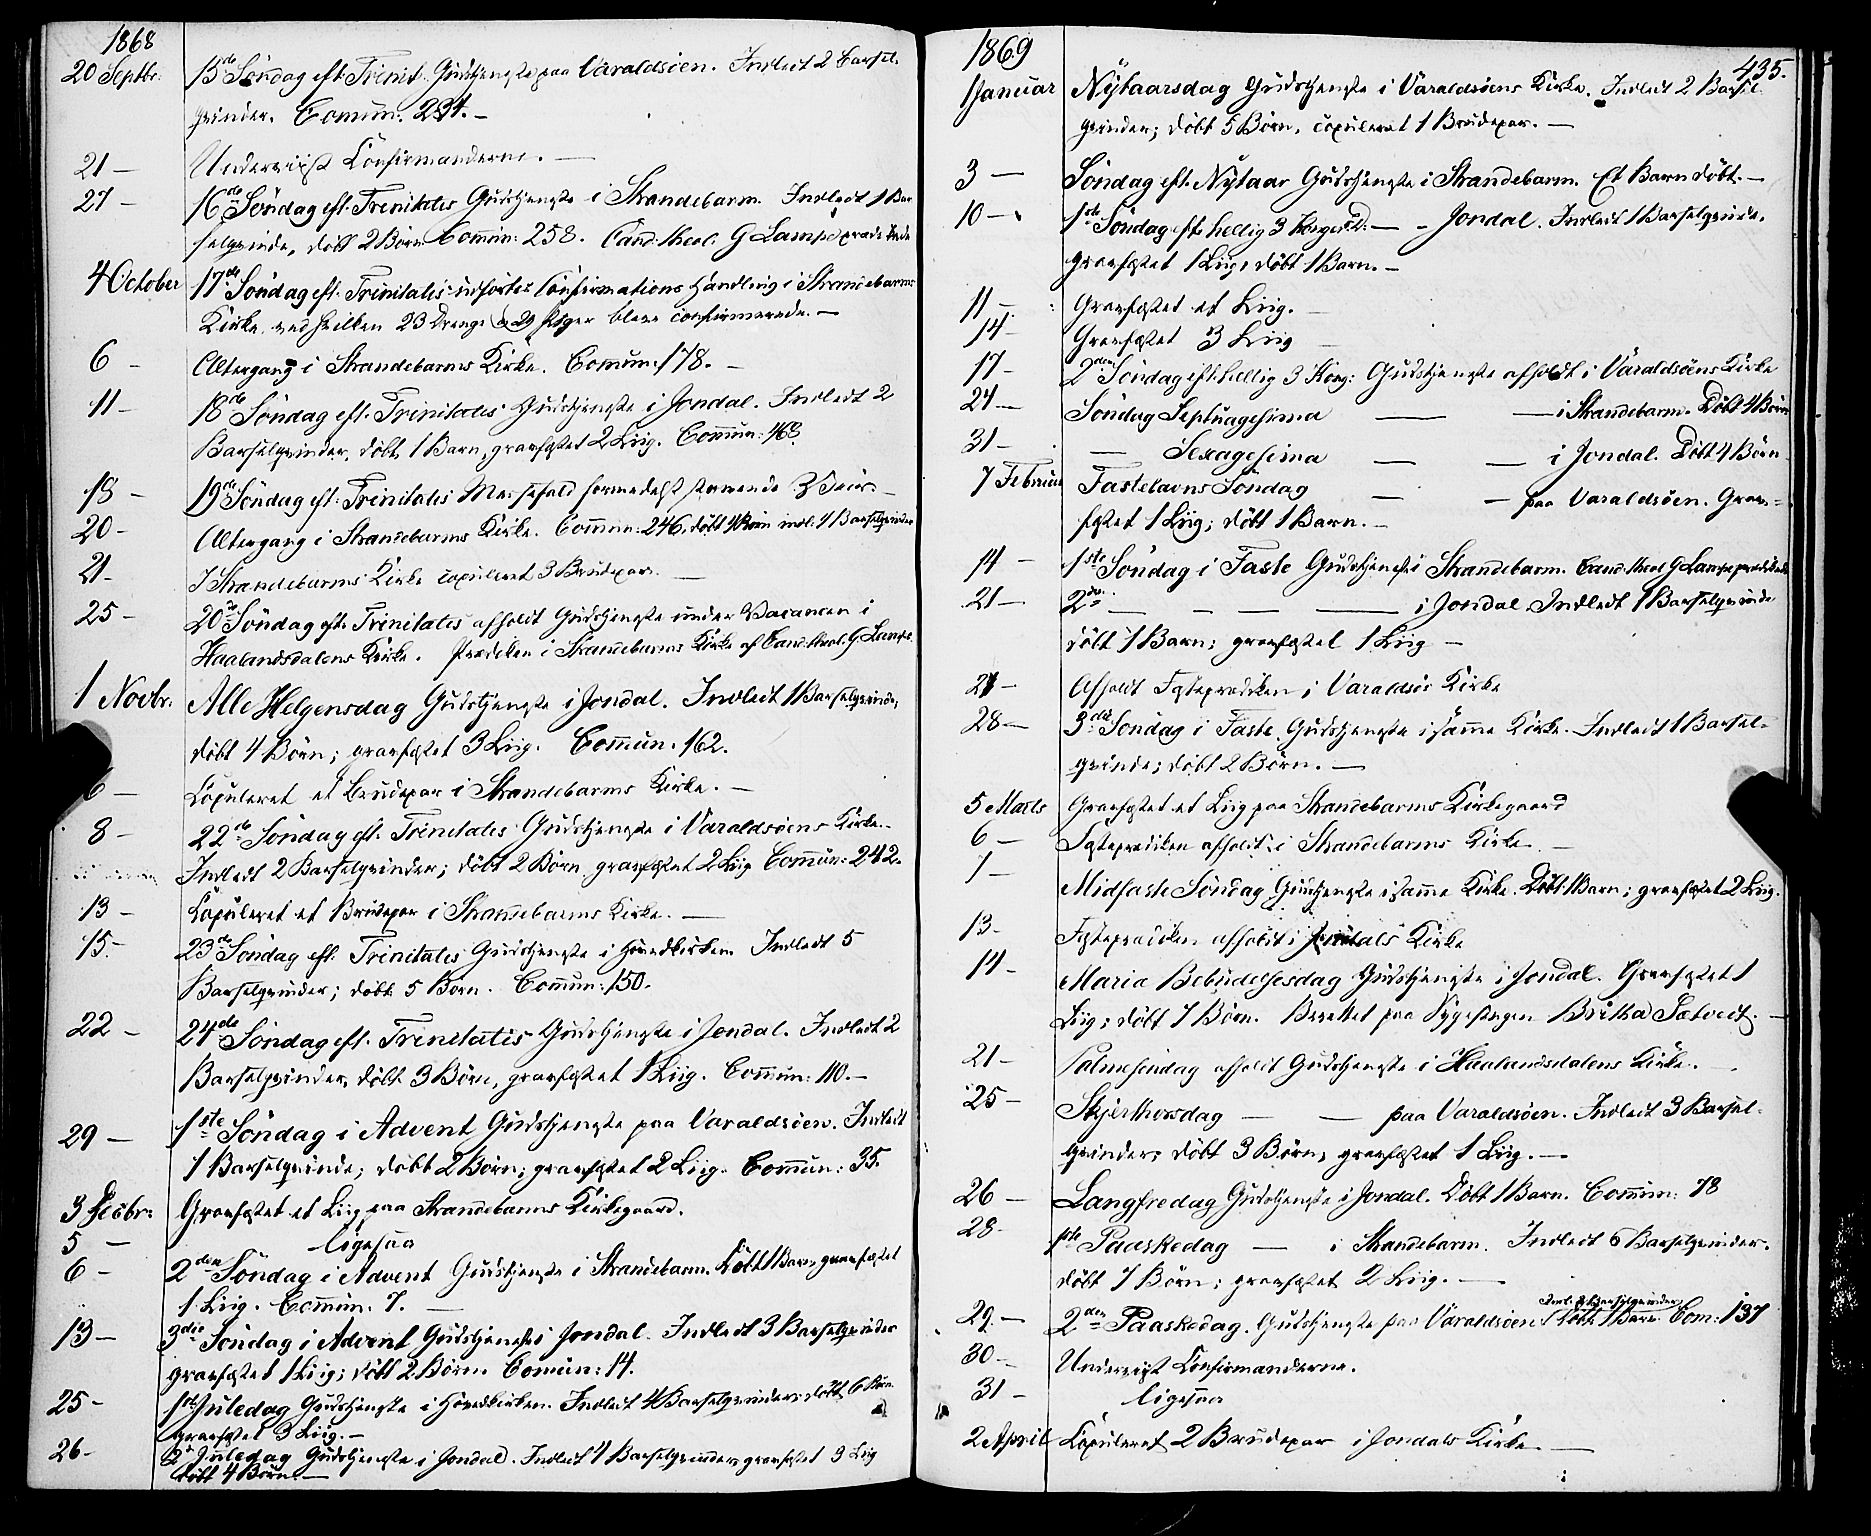 1868
20 Septbr. 15de Söndag eft. Trinit. Gudstjeneste paa Varaldsöen. Indledt 2 Barsel-
qvinder. Comun. 234. —
21 — Underviist Confirmanderne. —
27 — 16de Söndag eft. Trinitatis Gudstjeneste i Strandebarm. Indledt 1 Bar
selqvinde, döbt 2 Börn Commun: 258. Cand. theol. G Lampe
4 October 17de Söndag eft. Trinitatis udförtes Confirmations Handling i Strandebarms
Kirke ved hvilken 23 Drenge og 29 Piger bleve confirmerede. —
6 — Altergang i Strandebarms Kirke. Commun: 178. —
11 — 18de Söndag eft. Trinitatis Gudstjeneste i Jondal. Indledt 2
Barselqvinder, döbt 1 Barn, gravfæstet 2 Liig. Commun: 168.
18 — 19de Söndag eft. Trinitatis Messefald formedelst Veir. —
20 — Altergang i Strandebarms Kirke. Commun: 246, döbt 4 Börn indl. 4 Barselqvinder
21 — I Strandebarms Kirke copuleret 3 Brudepar. —
25 — 20de Söndag eft. Trinitatis afholdt Gudstjeneste under Vacancen i
Haalandsdalens Kirke. Prædiken i Strandebarms Kirke af Cand. theol. G. Lampe
1 Novbr. Alle Helgensdag Gudstjeneste i Jondal. Indledt 1 Barselqvinde,
döbt 4 Börn; gravfæstet 3 Liig. Commun. 162.
6 — Copuleret et Brudepar i Strandebarms Kirke. —
8 — 22de Söndag eft. Trinitatis Gudstjeneste i Varaldsöens Kirke.
Indledt 2 Barselqvinder; döbt 2 Börn gravfæstet 2 Liig Commun: 242.
13 — Copuleret et Brudepar i Strandebarms Kirke. —
15. — 23de Söndag eft. Trinitatis Gudstjeneste i Hovedkirken Indledt 5
Barselqvinder; döbt 5 Börn. Commun: 150.
22 — 24de Söndag eft. Trinitatis Gudstjeneste i Jondal. Indledt 2
Barselqvinder, döbt 3 Börn, gravfæstet 1 Liig. Commun: 110. —
29 — 1ste Söndag i Advent Gudstjeneste paa Varaldsöen. Indledt
1 Barselqvinde; döbt 2 Börn; gravfæstet 2 Liig. Commun: 35.
3 Decbr: Gravfæstet et Liig paa Strandebarms Kirkegaard.
5 — ligesaa
6 — 2den Söndag i Advent Gudstjeneste i Strandebarm. Döbt 1 Barn, gravfæstet
1 Liig. Commun. 7. —
13 — 3die Söndag i Advent Gudstjeneste i Jondal. Indledt 3 Barselqvinder
gravfæstet 1 Liig; döbt 2 Börn. Comun: 14.
25 — 1ste Juledag Gudstjeneste i Hovedkirken. Indledt 4 Barselqvinder; döbt 6 Börn
gravfæstet 3 Liig. —
26 — 2d Juledag Gudstjeneste i Jondal. Indledt 4 Barselqvinder, gravfæstet 3 Liig
döbt 4 Börn. —
1869
435.
1 Januar Nytaarsdag Gudstjeneste i Varaldsöens Kirke. Indledt 2 Barsel
qvinder; döbt 5 Börn, copuleret 1 Brudepar. —
3 — Söndag eft. Nytaar Gudstjeneste i Strandebarm. Et Barn döbt. —
10 — 1ste Söndag eft. hellig 3 Konger D: — — Jondal. Indledt 1 Barselqvinde,
gravfæstet 1 Liig, döbt 1 Barn. —
11 — Gravfæstet et Liig. —
14 — Gravfæstet 3 Liig —
17 — 2den Söndag eft. hellig 3 Kong: Gudstjeneste afholdt i Varaldsöens Kirke
24 — Söndag Septuagesima — — i Strandebarm. Döbt 4 Börn
31 — — Sexagesima — — i Jondal. Döbt 4 Börn
7 Februar Fastelavns Söndag — — paa Varaldsöen. Grav-
fæstet 1 Liig; döbt 1 Barn. —
14 — 1ste Söndag i Faste Gudstjeneste i Strandebarm. Cand. theol G Lampe prædikede
21 — 2den — — — — i Jondal Indledt 1 Barselqvinde
döbt 1 Barn; gravfæstet 1 Liig —
27 — Afholdt Fasteprædiken i Varaldsöe Kirke
28 — 3die Söndag i Faste. Gudstjeneste i samme Kirke. Indledt 1 Barsel-
qvinde; döbt 2 Börn. —
5 Marts Gravfæstet et Liig paa Strandebarms Kirkegaard
6 — Fasteprædiken afholdt i Strandebarms Kirke —
7 — Midfaste Söndag Gudstjeneste i samme Kirke. Döbt 1 Barn; gravfæstet 2 Liig.
13. Fasteprædiken afholdt i Jondals Kirke
14 — Maria Bebudelsesdag Gudstjeneste i Jondal. Gravfæstet 1
Liig; döbt 7 Börn. Berettet paa Sygesengen Britha Sætveit. —
21 — Palmesöndag afholdt Gudstjeneste i Haalandsdalens Kirke. —
25 — Skjerthorsdag — — paa Varaldsöen. Indledt 3 Barsel-
qvinder, döbt 3 Börn, gravfæstet 1 Liig. —
26 — Langfredag Gudstjeneste i Jondal. Döbt 1 Barn. Commun: 78
28 — 1ste Paaskedag — i Strandebarm. Indledt 6 Barselqvinder.
döbt 7 Börn; gravfæstet 2 Liig. —
29 — 2den Paaskedag. Gudstjeneste paa Varaldsöen Indl. 2 Barselqvinder Döbt 1 Barn. Com: 137
30 — Underviist Confirmanderne.
31 — ligesaa
2 April Copuleret 2 Brudepar i Jondals Kirke —